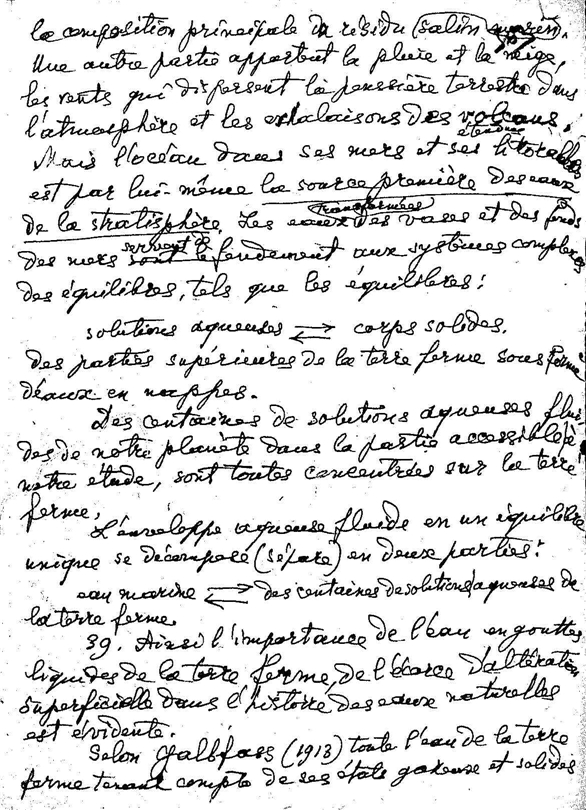 la composition principale du résidu (salin marin).
Une autre partie apportent la pluie et la neige,
les vents qui dispersent la poussière terrestre dans
l'atmosphère et les exhalaisons des volcans.
étendue
Mais l'océan dans ses mers et ses littorales
est par lui-même la source première des eaux
transformées
de la stratisphère. Les eaux des vases et des fonds
servent de
des mers sont le fondement aux systèmes complexes
des équilibres, tels que les équilibres:
solutions aqueuses ⇄ corps solides.
des parties supérieures de la terre ferme sous forme
d'eaux en nappes.
Des centaines de solutions aqueuses flui-
des de notre planète dans la partie accessible à
notre étude, sont toutes concentrées sur la terre
ferme.
L'enveloppe aqueuse fluide en un équilibre
unique se décompose (sépare) en deux parties:
eau marine ⇄ des centaines de solutions aqueuses de
la terre ferme.
39. Ainsi l'importance de l'eau en gouttes
liquides de la terre ferme, de l'écorce d'altération
superficielle dans l'histoire des eaux naturelles
est évidente.
Selon Halbfass (1913) toute l'eau de la terre
ferme tenant compte de ses états gazeuse et solides